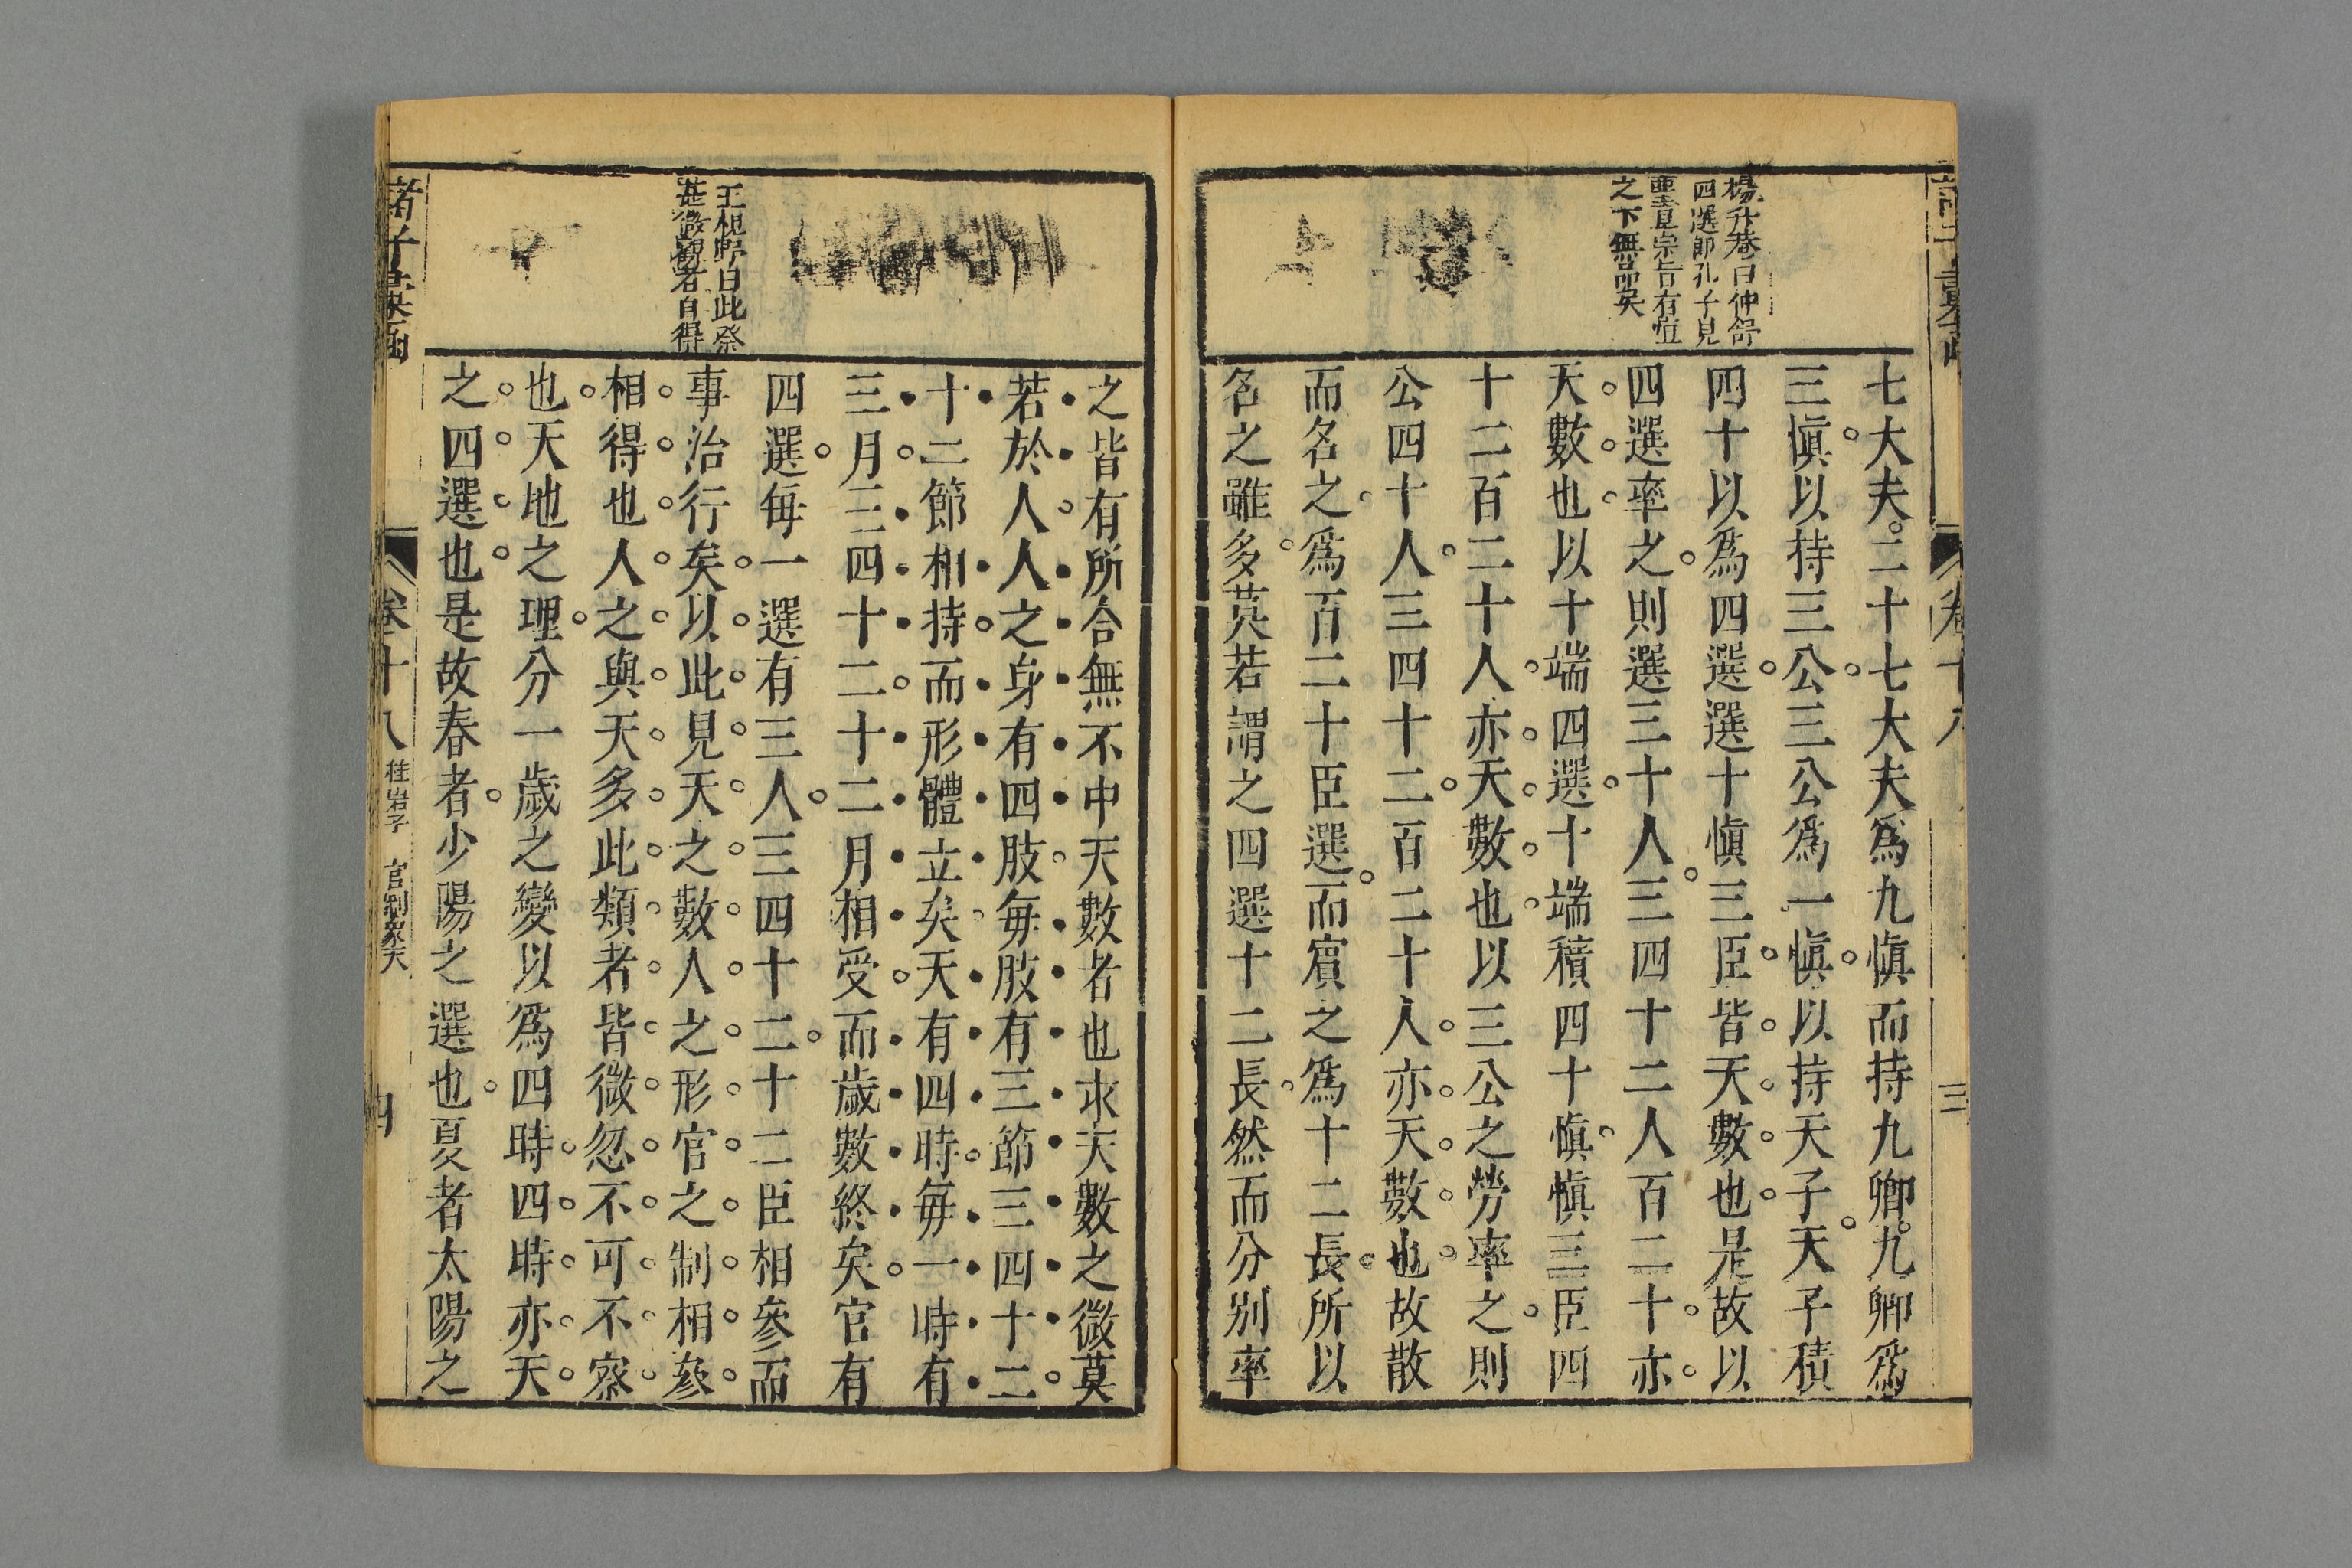 楊升菴曰仲舒
四選卽孔子見
聖言見宗旨有
之下無品矣
七大夫二十七大夫爲九愼而持九卿九卿爲
三愼以持三公三公爲一愼以持天子天子積
四十以爲四選選十愼三臣皆天數也是故以
四選率之則選三十人三四十二人百二十亦
天數也以十端四選十端積四十愼愼三臣四
十二百二十人亦天數也以三公之勞率之則
公四十人三四十二百二十人亦天數也故散
而名之爲百二十臣選而賔之爲十二長所以
名之雖多莫若謂之四選十二長然而分别率
王槐野曰此發
甚微觀者自得
之皆有所合無不中天數者也求天數之微莫
若於人人之身有四肢每肢有三節三四十二
十二節相持而形體立矣天有四時每一時有
三月三四十二十二月相受而歲數終矣官有
四選每一選有三人三四十二十二臣相參而
事治行矣以此見天之數人之形官之制相參
相得也人之與天多此類者皆微忽不可不察
也天地之理分一歲之變以爲四時四時亦天
之四選也是故春者少陽之選也夏者太陽之
諸子彙函
卷十八
桂岩子
官制象天
四
卷十八
三